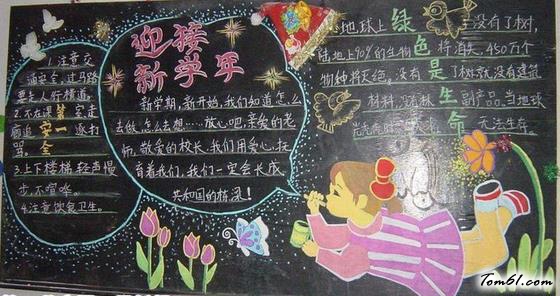 1.注意交
通安全,过马路
要走人行横道。
2.不在课室走
廊追逐打
骂。
安全第一
3.上下楼梯,轻声慢
步,不喧哗。
4.注意饮食卫生。
迎接
新学年
新学期,新开始,我们知道怎么
去做,怎么去想……放心吧,亲爱的老
师,敬爱的校长,我们用爱心,抚
育着我们,我们一定会长成
共和国的栋梁!
绿色是生命
地球上没有了树,
陆地上90%的生物将消失,450万个
物种将灭绝。没有了树就没有建筑
材料,森林副产品。当地球
无法生存。
Tom61.com